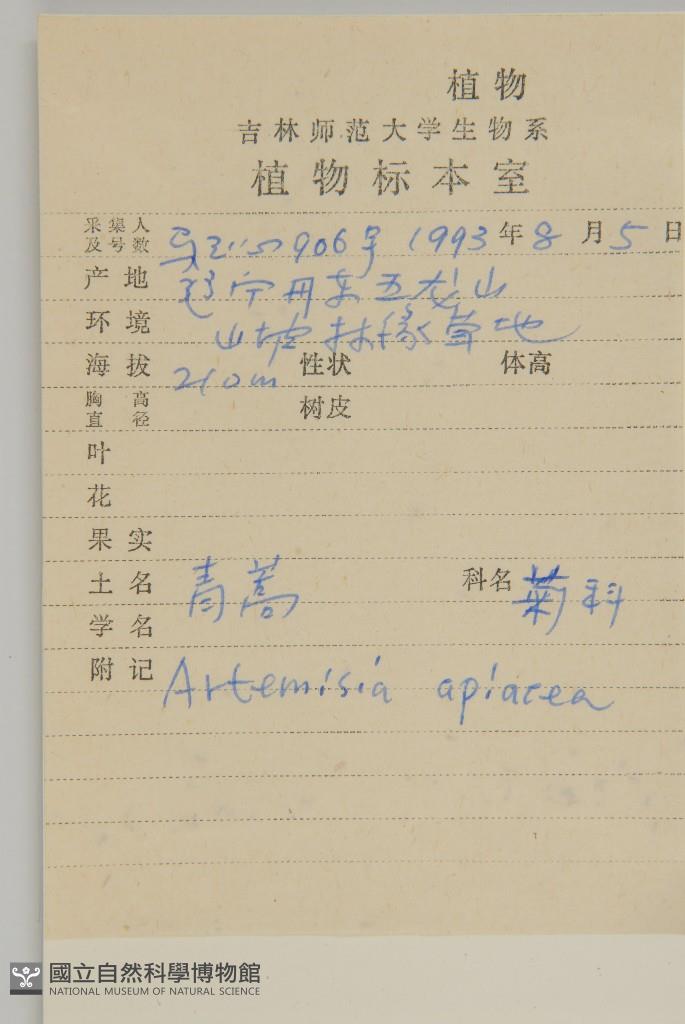 植物
吉林师范大学生物系
植物标本室
采集人及号数 906号 1993年8月5日
产地 辽宁丹东五龙山
环境 山坡林缘草地
海拔 210m 性状 体高
胸高直径 树皮
叶
花
果实
土名 青蒿 科名 菊科
学名
附记 Artemisia apiacea
國立自然科學博物館
NATIONAL MUSEUM OF NATURAL SCIENCE